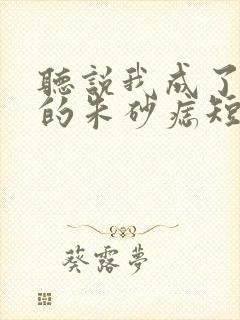 聽説我成了
的朱砂痣短
葵露夢